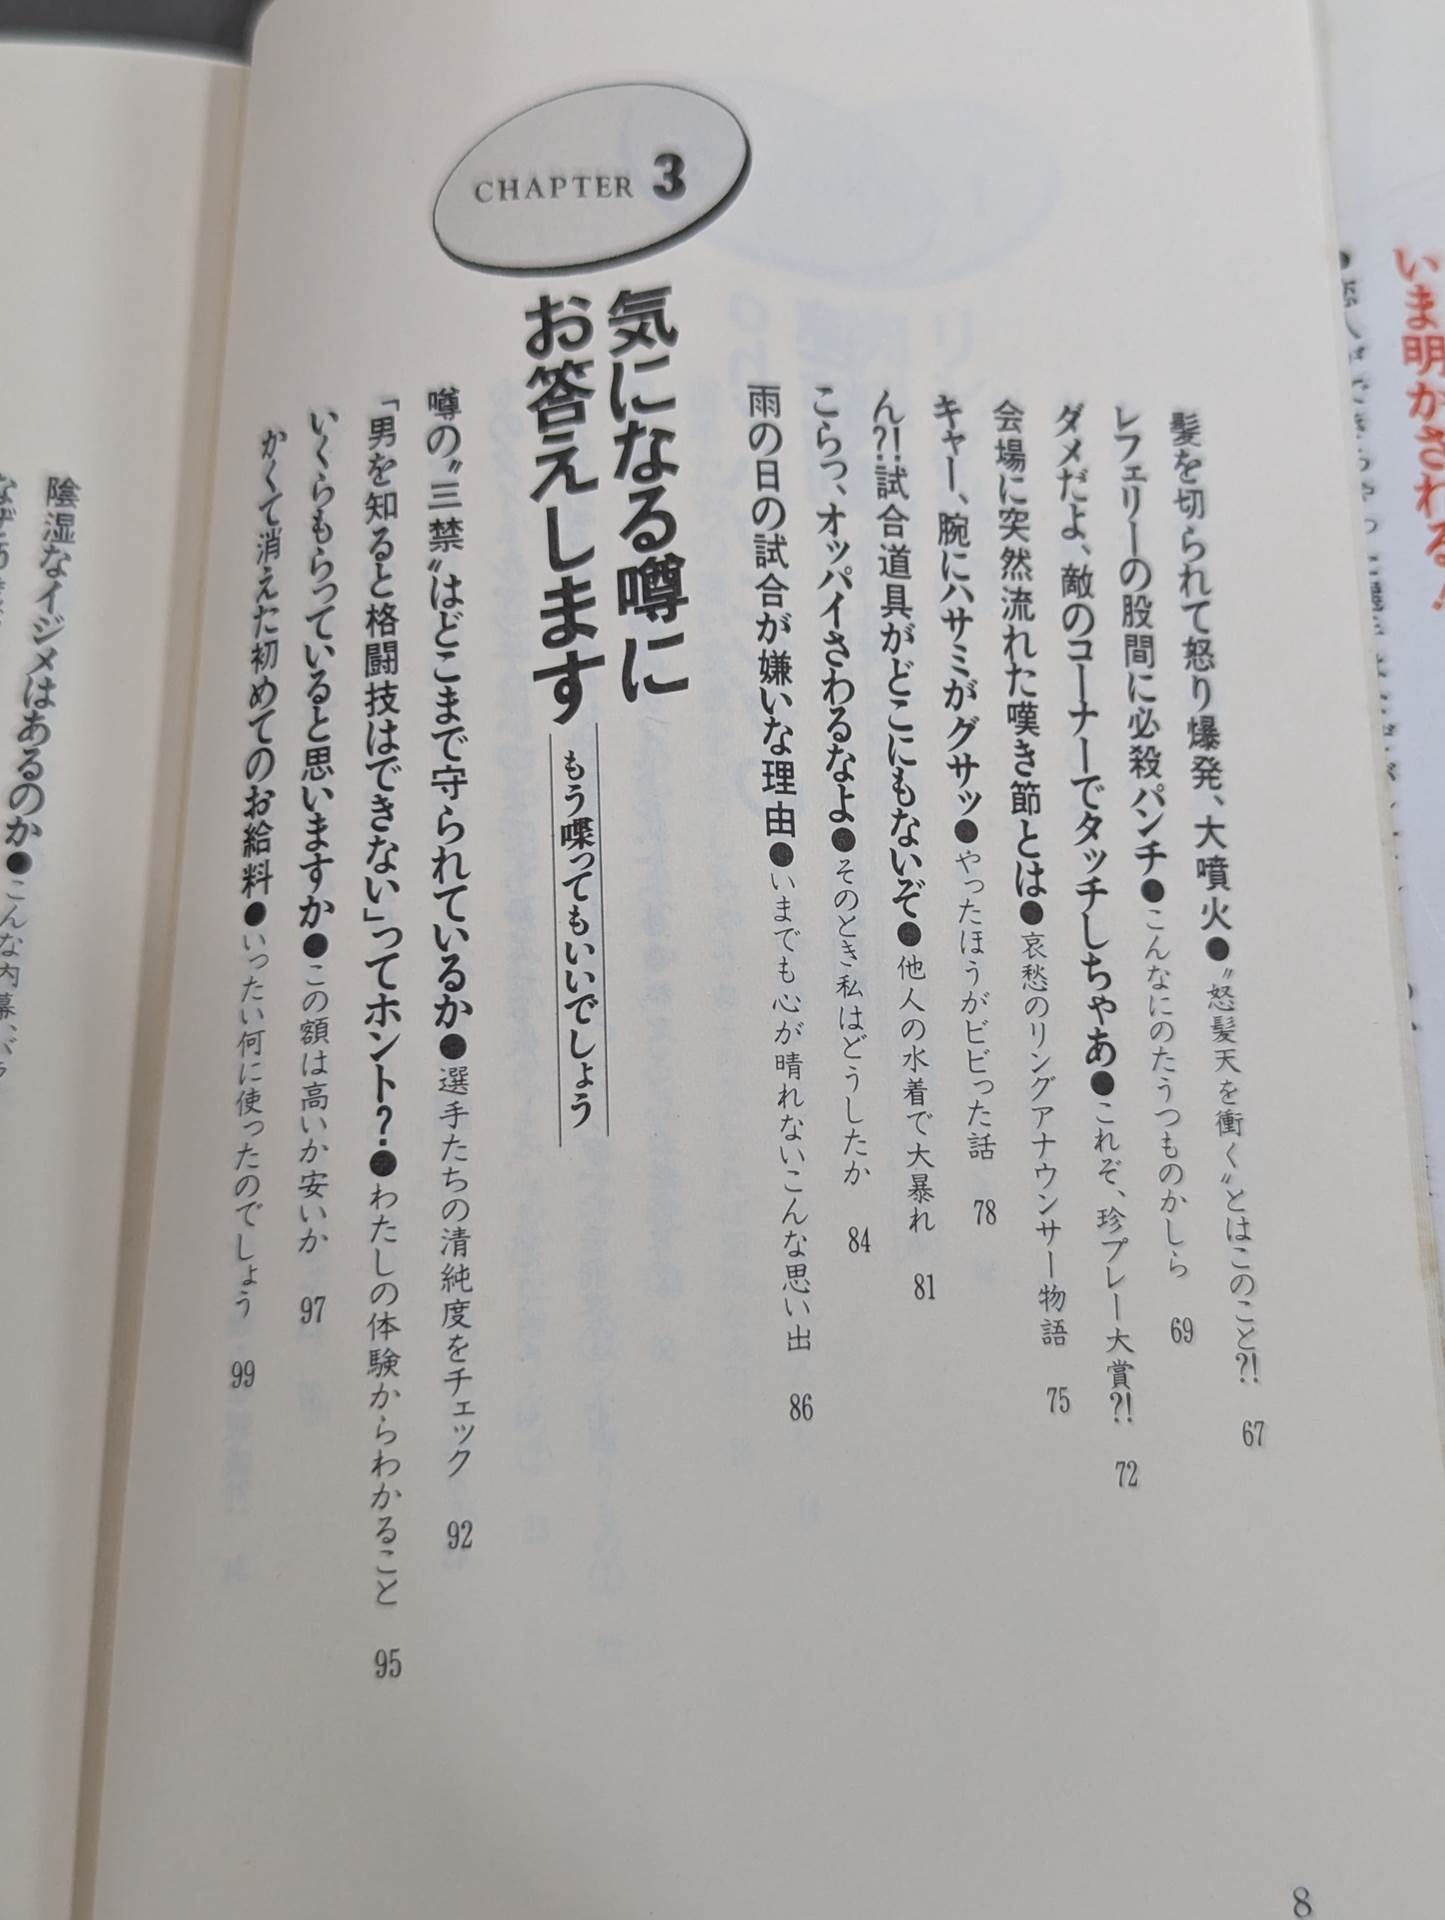 いま明かされる!
髪を切られて怒り爆発、大噴火●〝怒髪天を衝く〟とはこのこと?! 67
レフェリーの股間に必殺パンチ●こんなにのたうつものかしら 69
ダメだよ、敵のコーナーでタッチしちゃあ●これぞ、珍プレー大賞?! 72
会場に突然流れた嘆き節とは●哀愁のリングアナウンサー物語 75
キャー、腕にハサミがグサッ●やったほうがビビった話 78
ん?!試合道具がどこにもないぞ●他人の水着で大暴れ 81
こらっ、オッパイさわるなよ●そのとき私はどうしたか 84
雨の日の試合が嫌いな理由●いまでも心が晴れないこんな思い出 86
CHAPTER 3
気になる噂に
お答えします
もう喋ってもいいでしょう
噂の〝三禁〟はどこまで守られているか●選手たちの清純度をチェック 92
「男を知ると格闘技はできない」ってホント?●わたしの体験からわかること 95
いくらもらっていると思いますか●この額は高いか安いか 97
かくて消えた初めてのお給料●いったい何に使ったのでしょう 99
陰湿なイジメはあるのか●こんな内幕、バラ
8